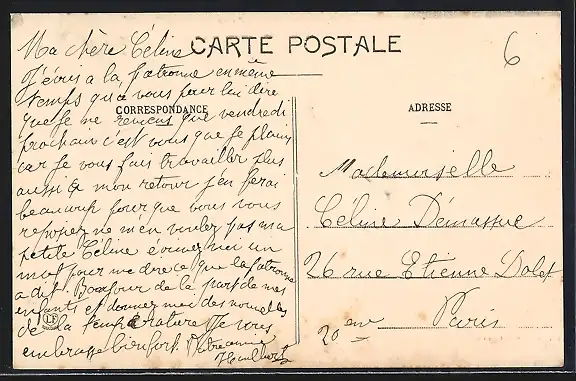 CARTE POSTALE
6
CORRESPONDANCE
ADRESSE
Ma chère Céline
J'écris a la patronne en même
temps qu'a vous pour lui dire
que je ne reviens que vendredi
prochain c'est vous que je plains
car je vous fais travailler plus
aussi a mon retour j'en ferai
beaucoup pour que vous vous
reposiez ne men voulez pas ma
petite Céline écrivez moi un
mot pour me dire ce que la patronne
a dit. Bonjour de la part de mes
enfants et donnez moi des nouvelles
de la température Je vous
embrasse bien fort. Votre amie
LF
Mademoiselle
Céline
26 rue Etienne Dolet
Paris
20 em